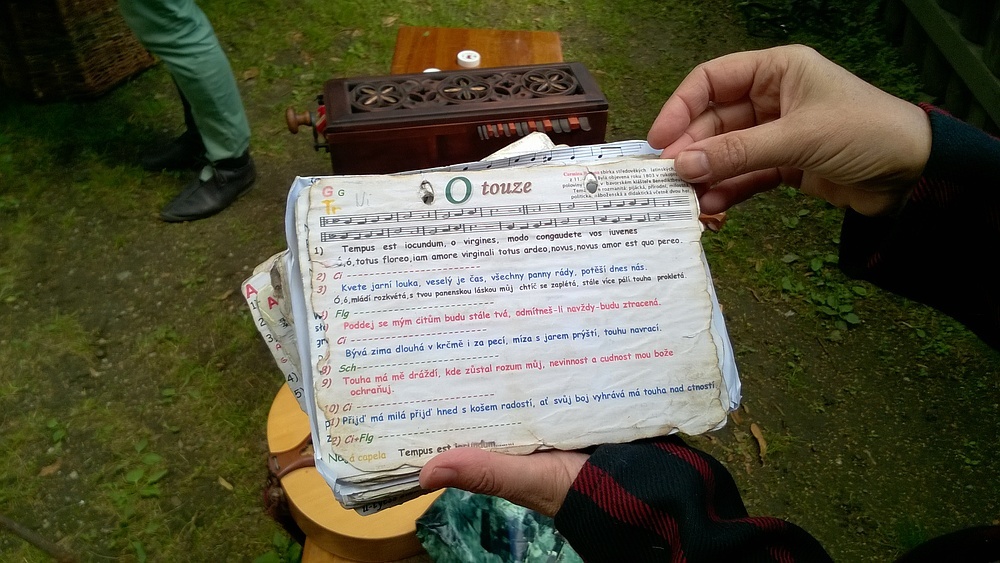 G G
Tr
O touze
Carmina sbírka středověkých latinských
z 11. byla objevena roku 1803 v
v bavorském klášteře
rozmanitá: pijácká, přírodní, milostná
politická, náboženská a didaktická včetně dvou
1) Tempus est iocundum, o virgines, modo congaudete vos iuvenes
ó, totus floreo, iam amore virginali totus ardeo, novus, novus amor est quo pereo.
2) Ci
3) Kvete jarní louka, veselý je čas, všechny panny rády, potěší dnes nás.
Ó, ó, mládí rozkvétá, s tvou panenskou láskou můj chtíč se zaplétá, stále více pálí touha prokletá.
Flg
Poddej se mým citům budu stále tvá, odmítneš-li navždy-budu ztracená.
Ci
Bývá zima dlouhá v krčmě i za pecí, míza s jarem prýští, touhu navrací.
8) Sch
9) Touha má mě dráždí, kde zůstal rozum můj, nevinnost a cudnost mou bože
ochraňuj.
10) Ci
11) Přijď má milá přijď hned s košem radostí, ať svůj boj vyhrává má touha nad ctností
Ci+Flg
á capela Tempus est iocundum......
A
A
1
2
3
4)
5)